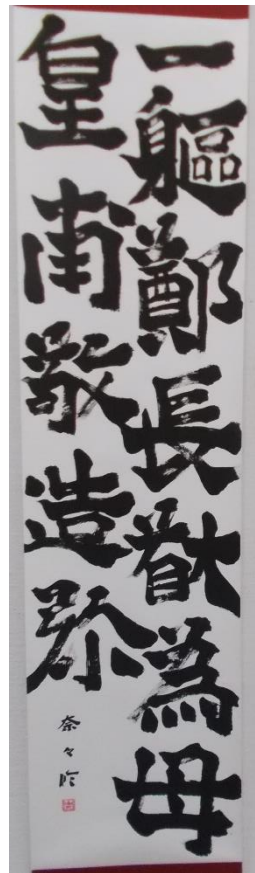 一軀鄭長猷為母
皇甫敬造弥
奈々臨